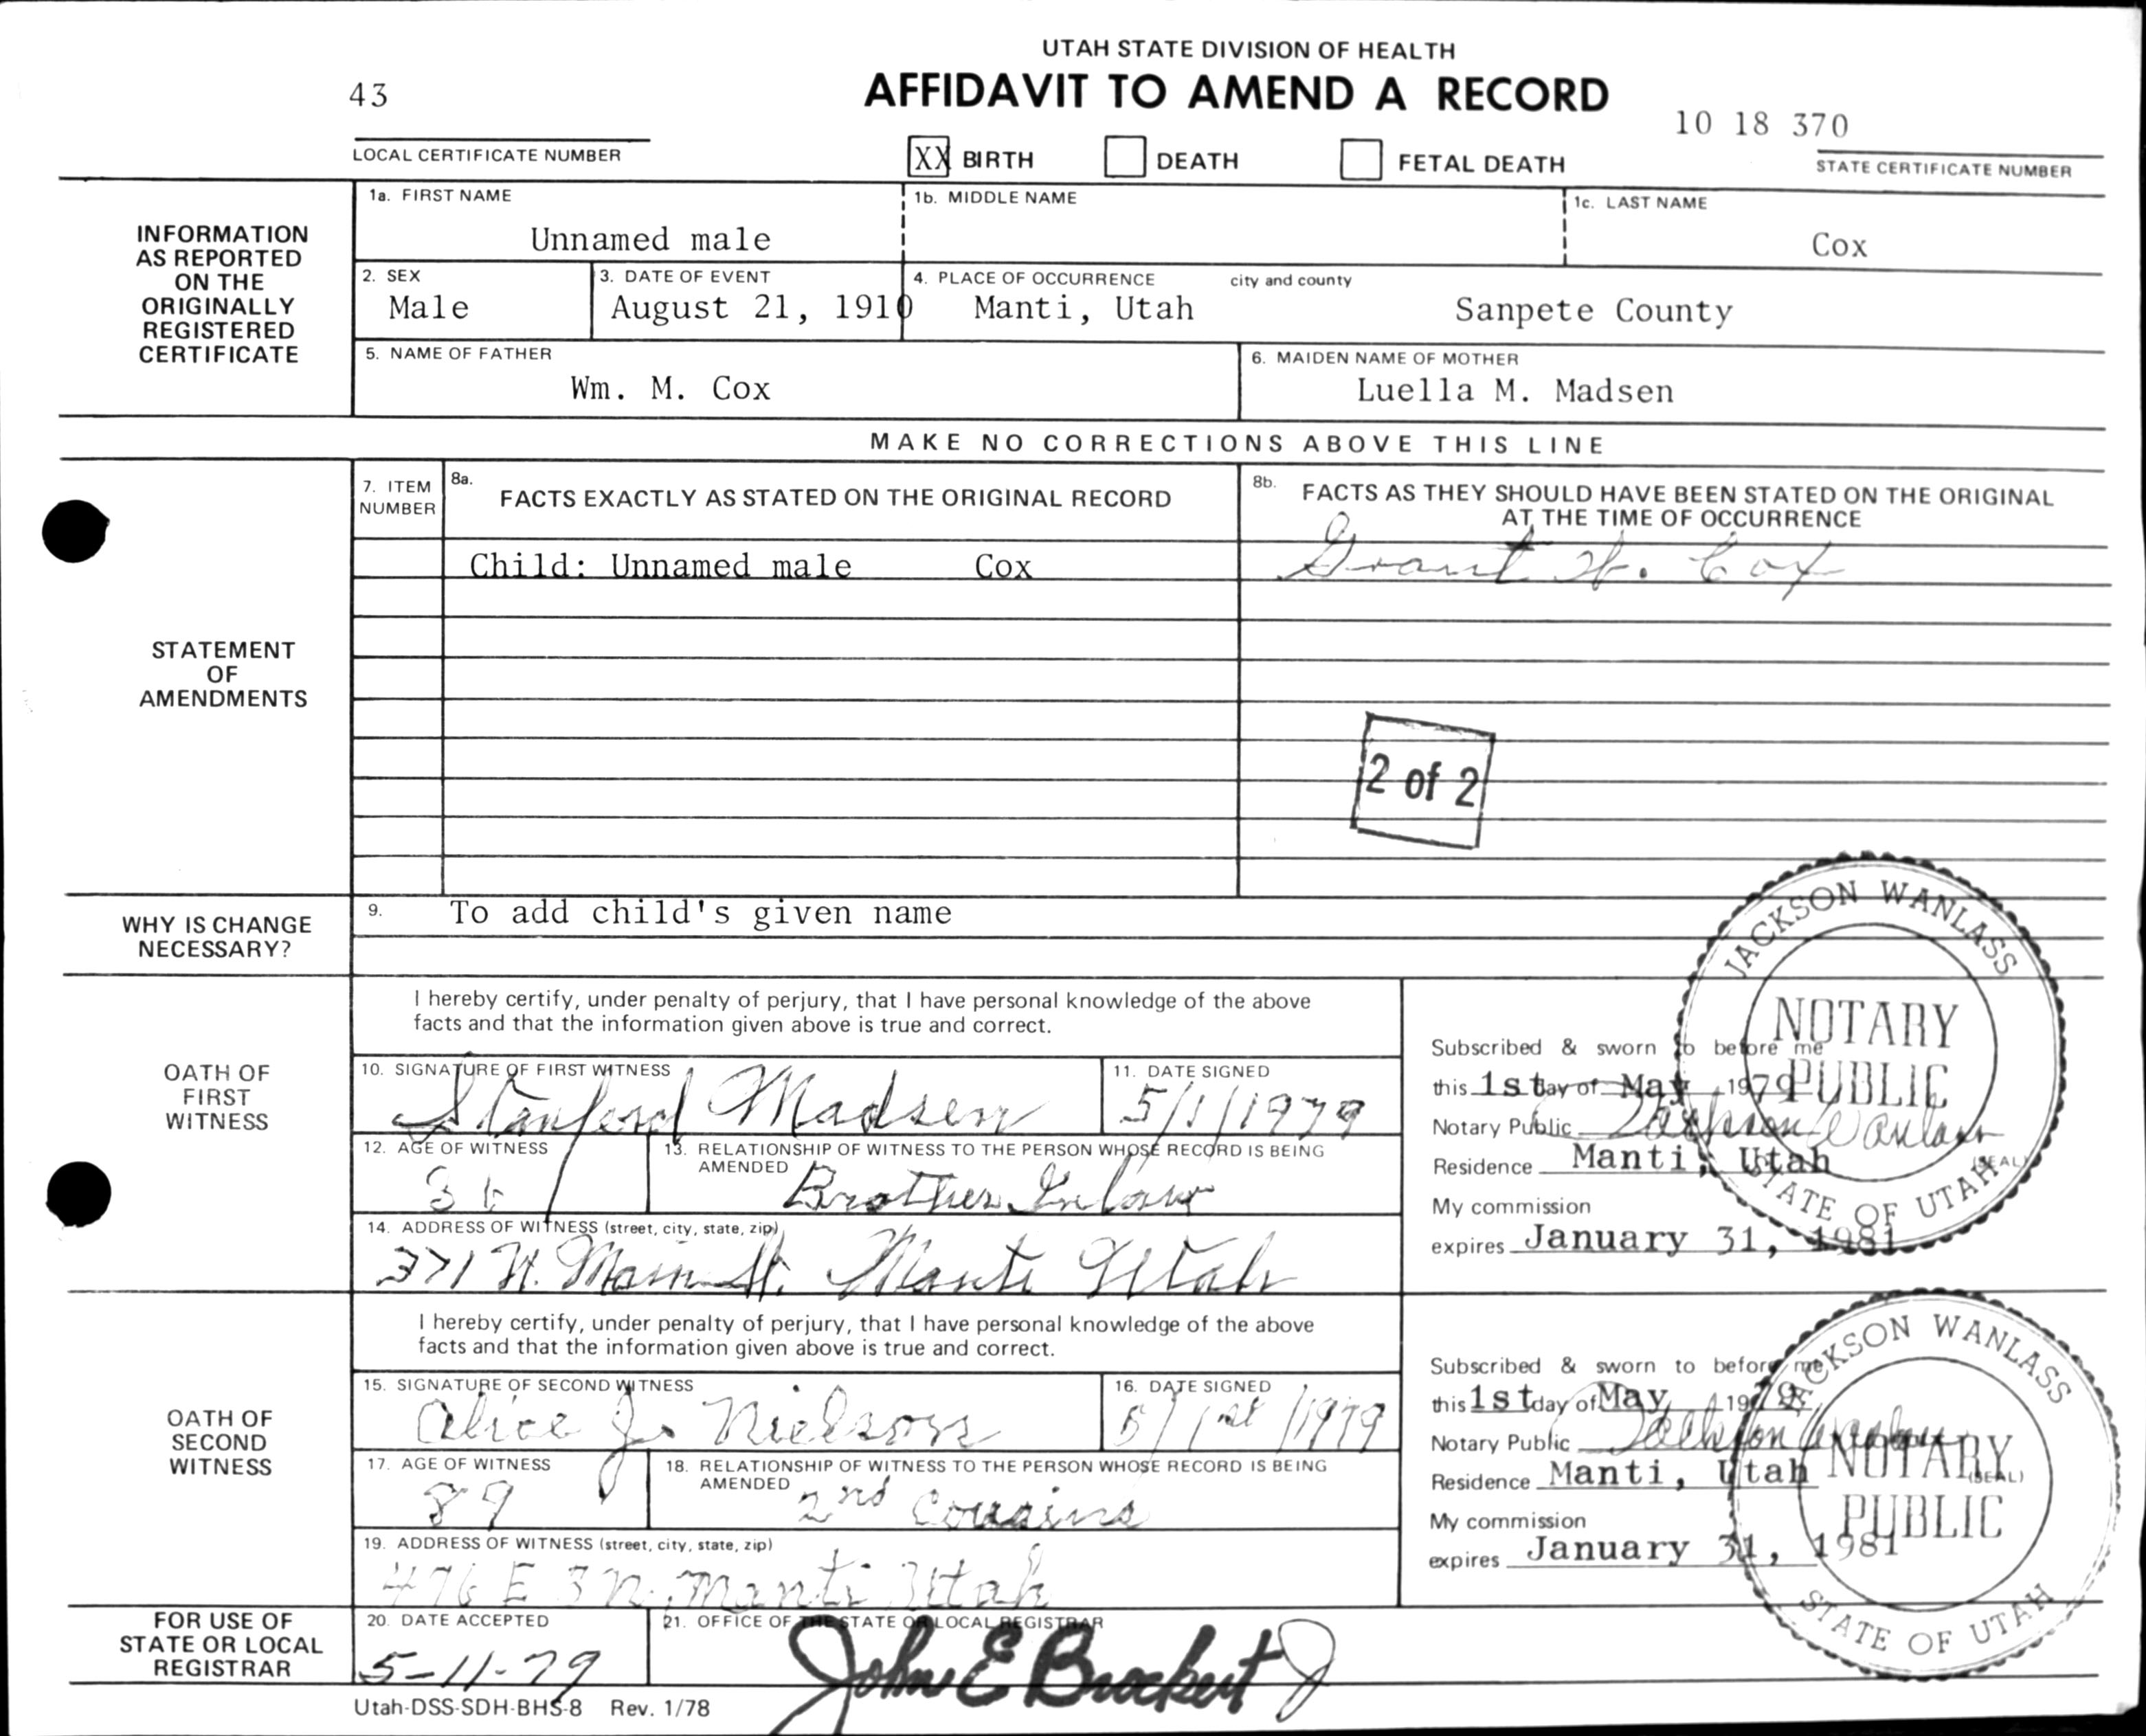 UTAH STATE DIVISION OF HEALTH
AFFIDAVIT TO AMEND A RECORD
43
10 18 370
LOCAL CERTIFICATE NUMBER
XX BIRTH DEATH FETAL DEATH
STATE CERTIFICATE NUMBER
INFORMATION AS REPORTED ON THE ORIGINALLY REGISTERED CERTIFICATE
1a. FIRST NAME 1b. MIDDLE NAME 1c. LAST NAME
Unnamed male Cox
2. SEX 3. DATE OF EVENT 4. PLACE OF OCCURRENCE city and county
Male August 21, 1910 Manti, Utah Sanpete County
5. NAME OF FATHER 6. MAIDEN NAME OF MOTHER
Wm. M. Cox Luella M. Madsen
MAKE NO CORRECTIONS ABOVE THIS LINE
STATEMENT OF AMENDMENTS
7. ITEM NUMBER
8a. FACTS EXACTLY AS STATED ON THE ORIGINAL RECORD
8b. FACTS AS THEY SHOULD HAVE BEEN STATED ON THE ORIGINAL
AT THE TIME OF OCCURRENCE
Child: Unnamed male Cox Grant W. Cox
2 of 2
WHY IS CHANGE NECESSARY?
9. To add child's given name
OATH OF FIRST WITNESS
I hereby certify, under penalty of perjury, that I have personal knowledge of the above
facts and that the information given above is true and correct.
10. SIGNATURE OF FIRST WITNESS 11. DATE SIGNED
Stanford Madsen 5/1/1979
12. AGE OF WITNESS 13. RELATIONSHIP OF WITNESS TO THE PERSON WHOSE RECORD IS BEING
AMENDED
Brother Inlaw
14. ADDRESS OF WITNESS (street, city, state, zip)
371 N. Main St. Manti Utah
Subscribed & sworn to before me
this 1st day of May, 1979
Notary Public Jackson Wanlass
Residence Manti, Utah (SEAL)
My commission
expires January 31, 1981
JACKSON WANLASS
NOTARY
PUBLIC
STATE OF UTAH
OATH OF SECOND WITNESS
I hereby certify, under penalty of perjury, that I have personal knowledge of the above
facts and that the information given above is true and correct.
15. SIGNATURE OF SECOND WITNESS 16. DATE SIGNED
Alice J. Nielson 5/1st/1979
17. AGE OF WITNESS 18. RELATIONSHIP OF WITNESS TO THE PERSON WHOSE RECORD IS BEING
AMENDED
89 2nd cousins
19. ADDRESS OF WITNESS (street, city, state, zip)
476 E 3 N. Manti Utah
Subscribed & sworn to before me
this 1st day of May, 1979
Notary Public Jackson Wanlass
Residence Manti, Utah (SEAL)
My commission
expires January 31, 1981
JACKSON WANLASS
NOTARY
PUBLIC
STATE OF UTAH
FOR USE OF STATE OR LOCAL REGISTRAR
20. DATE ACCEPTED 21. OFFICE OF THE STATE OR LOCAL REGISTRAR
5-11-79 John E Brockert
Utah-DSS-SDH-BHS-8 Rev. 1/78